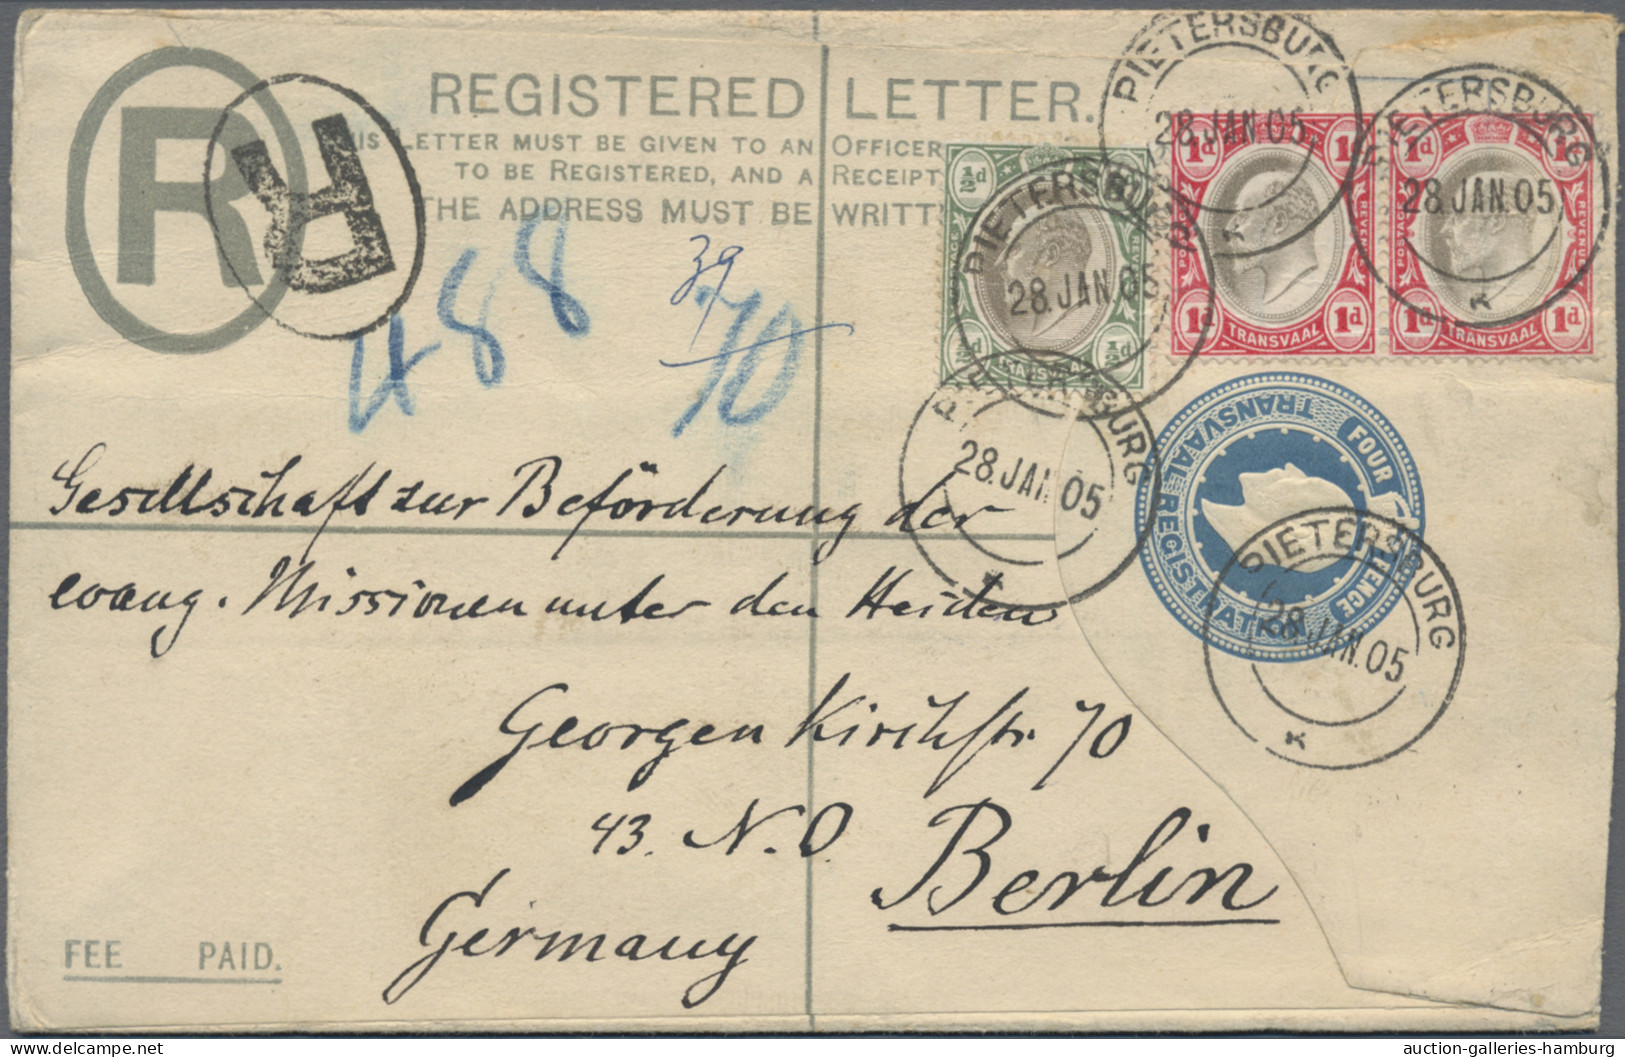 REGISTERED LETTER.
THIS LETTER MUST BE GIVEN TO AN OFFICER
TO BE REGISTERED, AND A RECEIPT
THE ADDRESS MUST BE WRITT
R
R
488
39
70
½d ½d
POSTAGE REVENUE
½d ½d
TRANSVAAL
1d 1d
POSTAGE REVENUE
1d 1d
TRANSVAAL
1d 1d
POSTAGE REVENUE
1d 1d
TRANSVAAL
PIETERSBURG
28 JAN 05
PIETERSBURG
28 JAN. 05
K
PIETERSBURG
28. JAN. 05
PIETERSBURG
28. JAN 05
TRANSVAAL REGISTRATION
FOUR PENCE
PIETERSBURG
28 JAN. 05
K
Gesellschaft zur Beförderung der
evang. Missionen unter den Heiden
Georgen Kirchstr. 70
43. N. O. Berlin
Germany
FEE PAID.
auction-galleries-hamburg